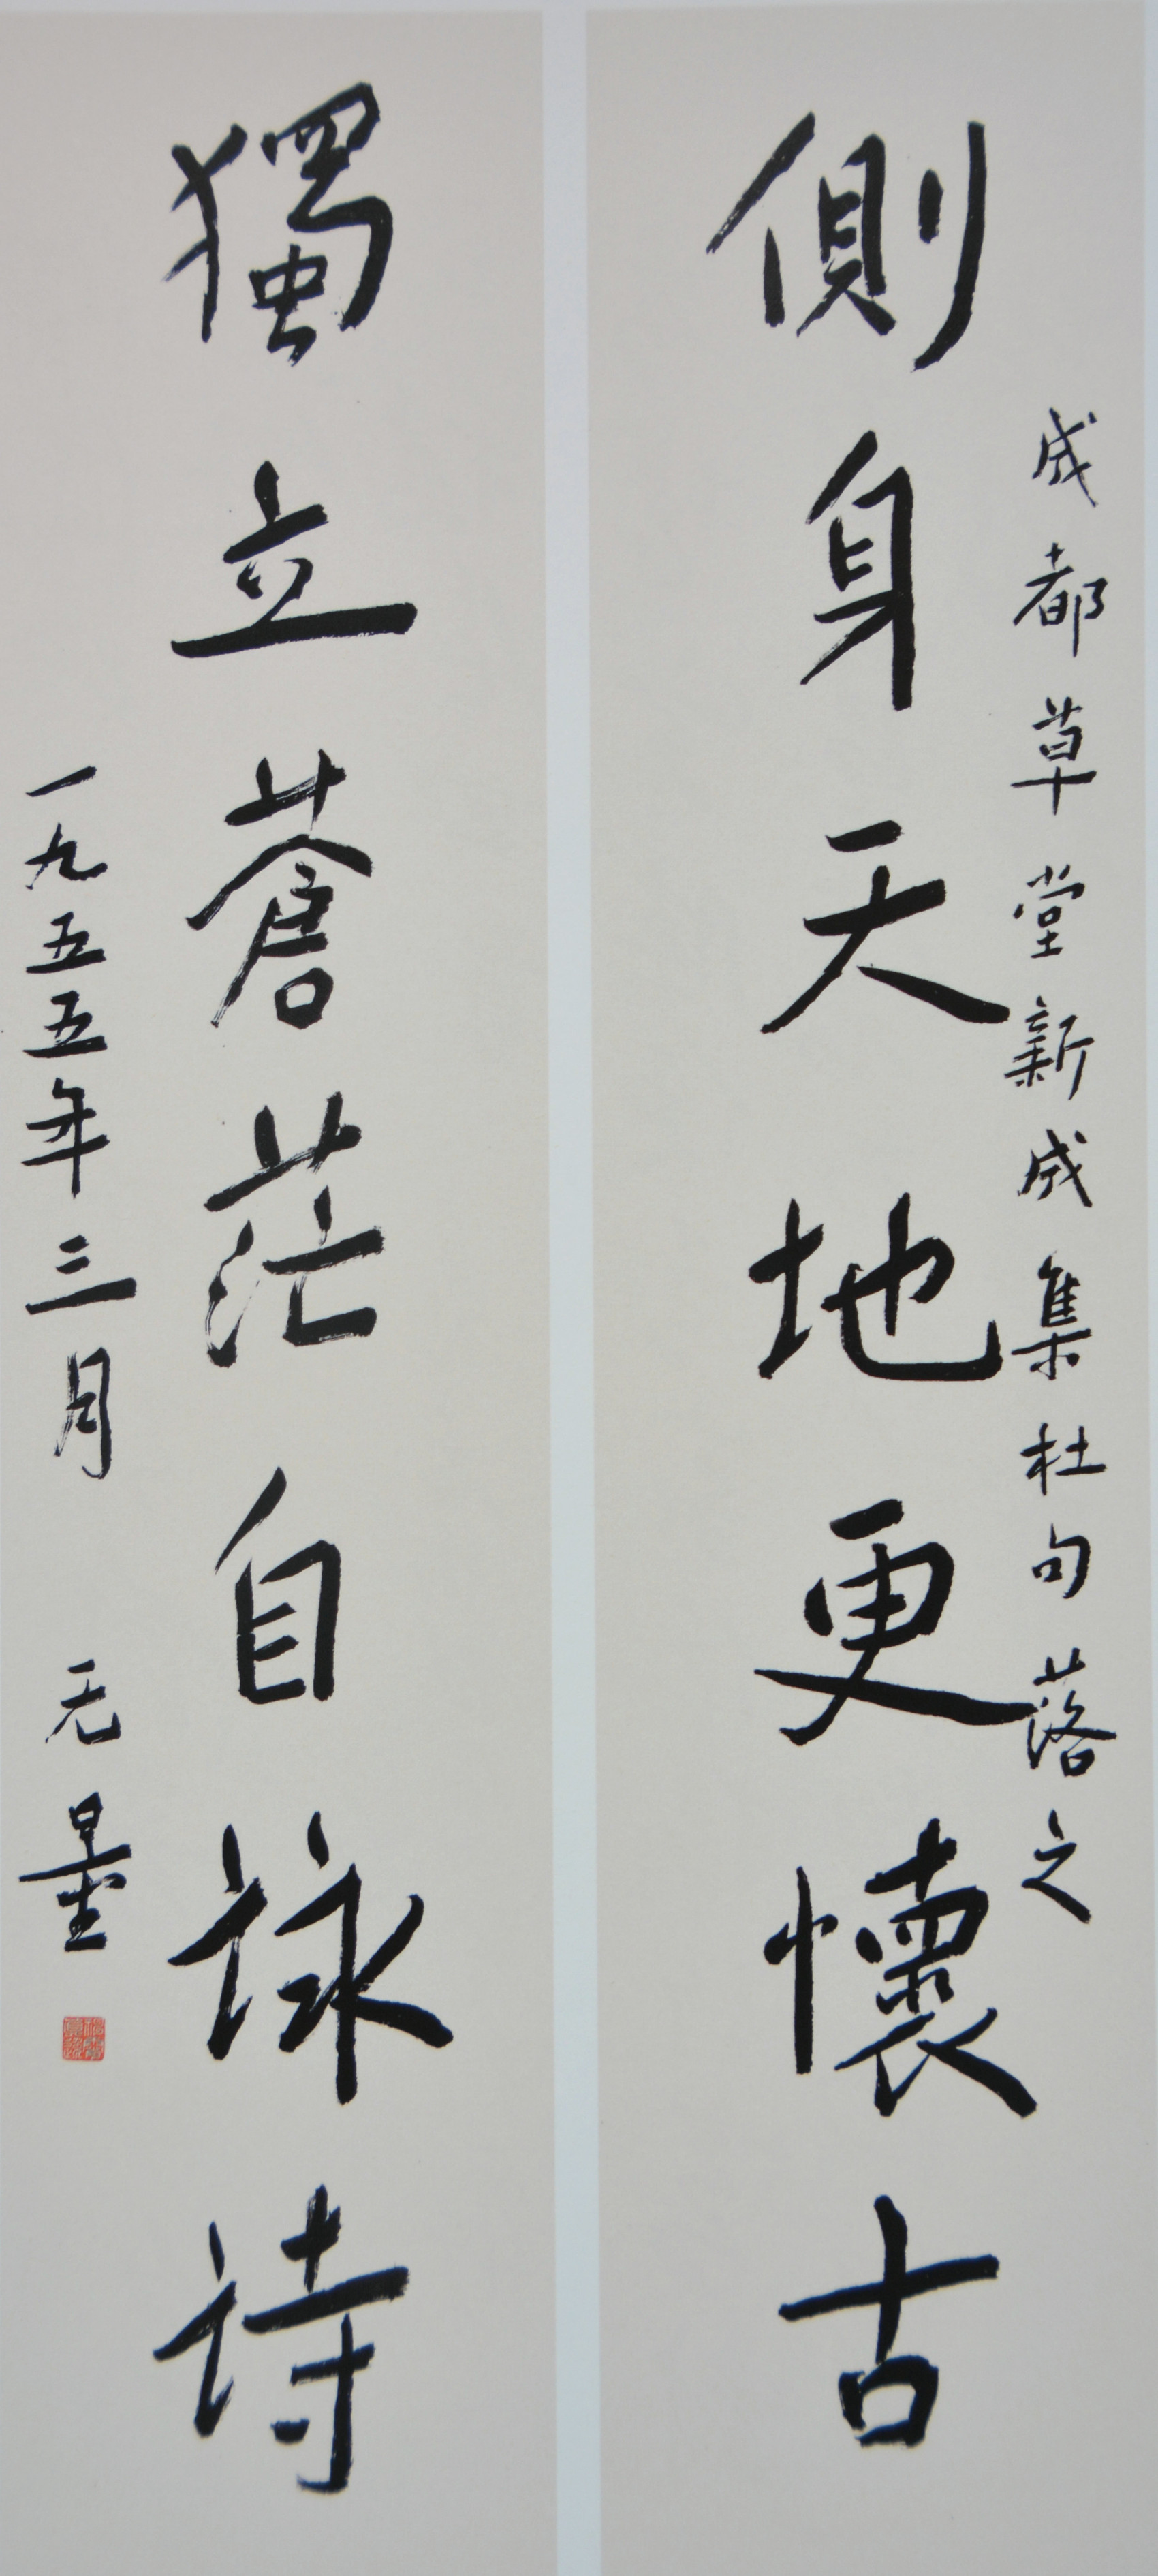 成都草堂新成集杜句落之
側身天地更懷古
獨立蒼茫自詠詩
一九五五年三月 无量